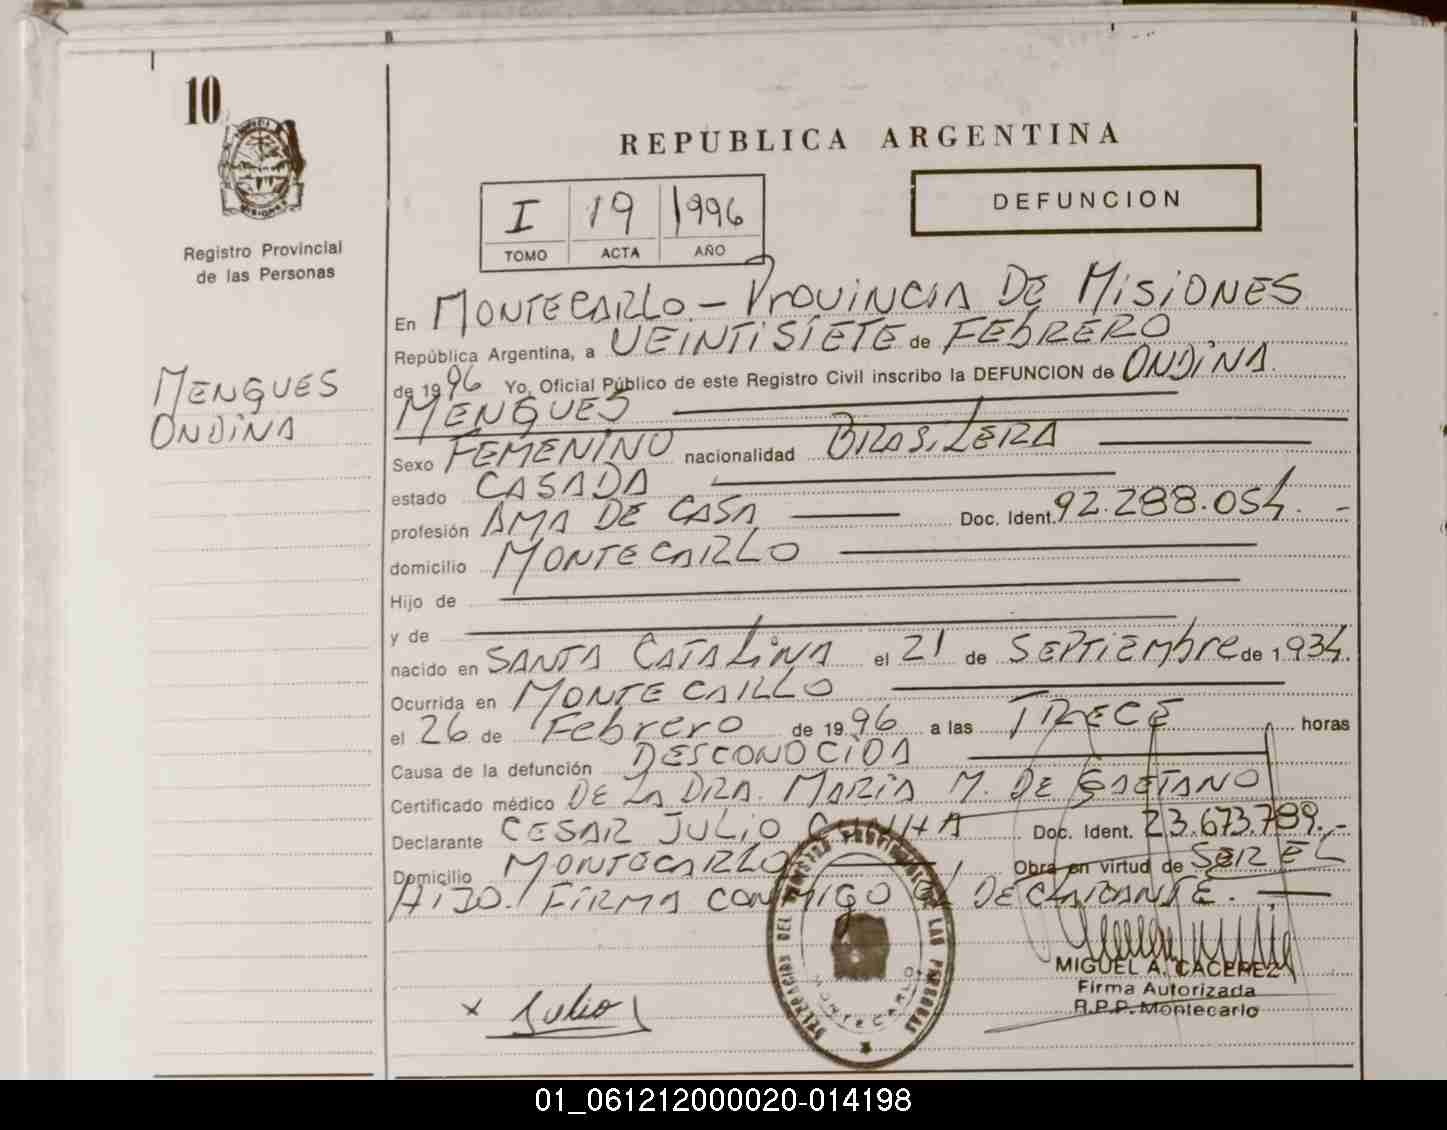 10
REPUBLICA ARGENTINA
DEFUNCION
I 19 1996
TOMO ACTA AÑO
Registro Provincial
de las Personas
MENGUES
ONDINA
En MONTECARLO - PROVINCIA DE MISIONES
República Argentina, a VEINTISIETE de FEBRERO
de 1996 Yo, Oficial Público de este Registro Civil inscribo la DEFUNCION de ONDINA
MENGUES
Sexo FEMENINO nacionalidad BRASILERA
estado CASADA
profesión AMA DE CASA Doc. Ident. 92.288.054.-
domicilio MONTECARLO
Hijo de
y de
nacido en SANTA CATALINA el 21 de SEPTIEMbre de 1934.
Ocurrida en MONTECARLO
el 26 de Febrero de 1996 a las TRECE horas
Causa de la defunción DESCONOCIDA
Certificado médico DE LA DRA. MARIA M. DE GAETANO
Declarante CESAR JULIO CUNHA Doc. Ident. 23.673.789.-
Domicilio MONTECARLO Obra en virtud de SER EL
HIJO. FIRMA CONMIGO EL DECLARANTE.
MIGUEL A. CACEREZ
Firma Autorizada
R.P.P. Montecarlo
x Julio
MONTECARLO
01_061212000020-014198